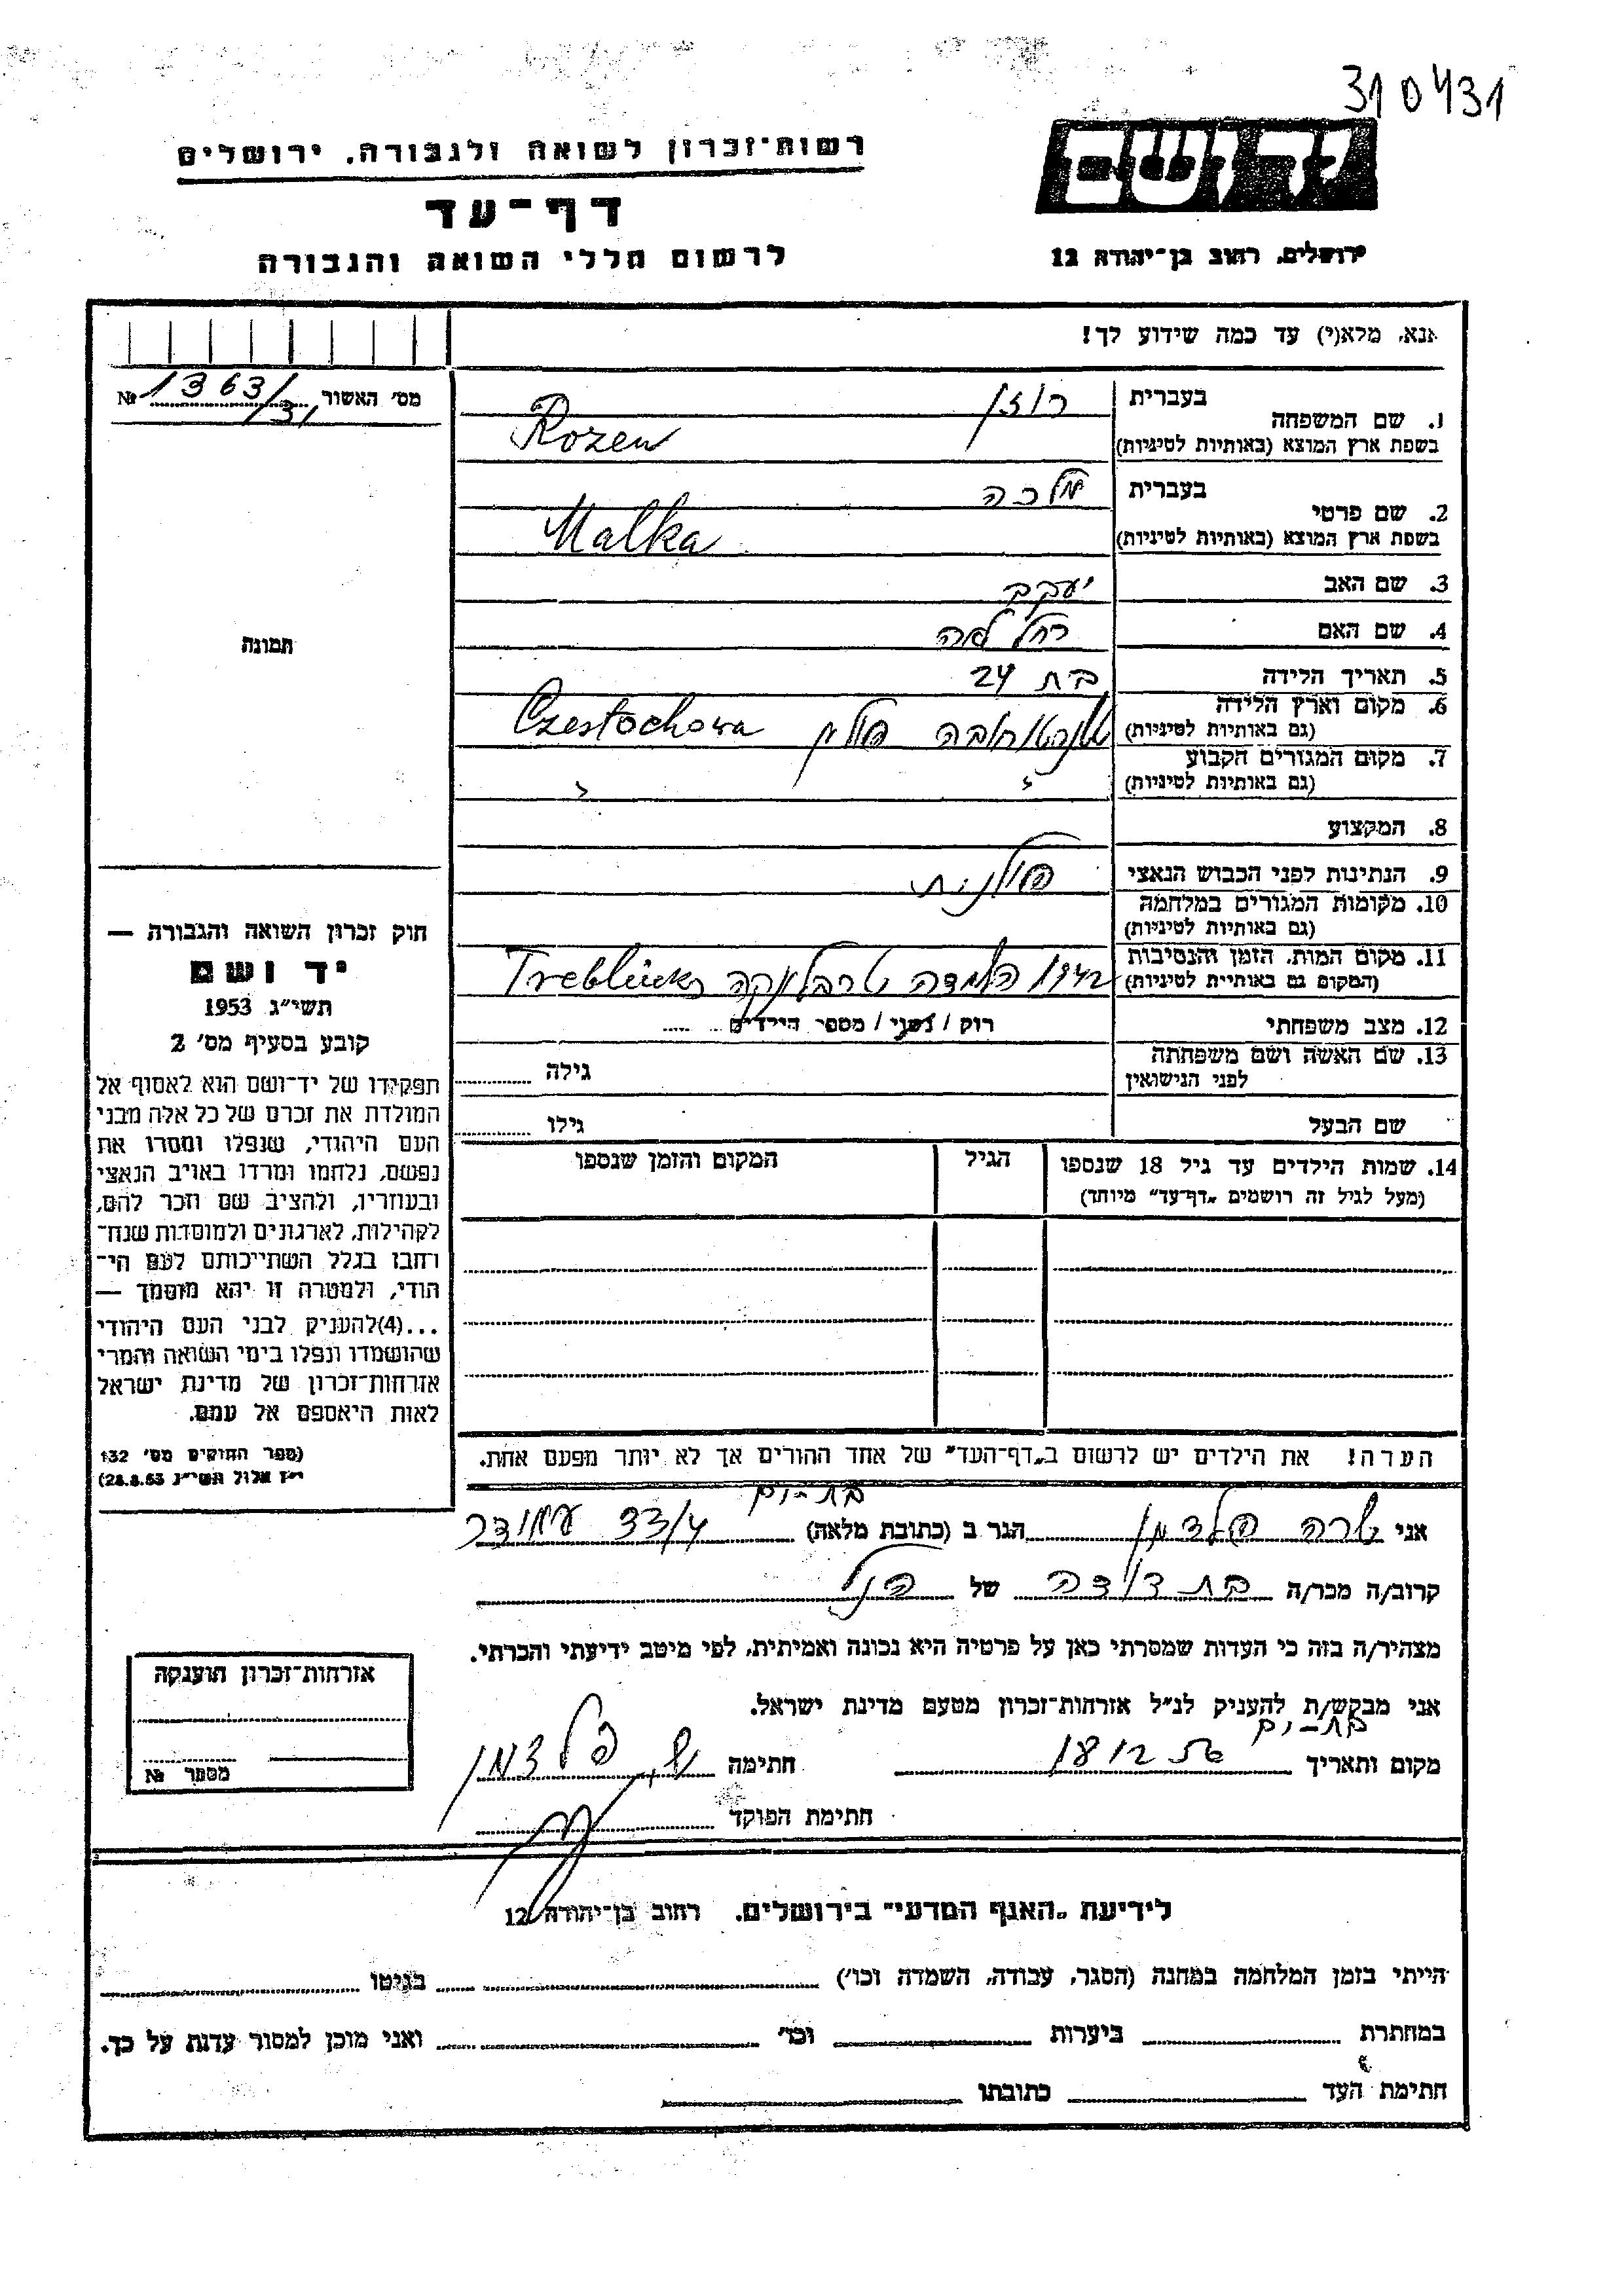 310431
רשות־זכרון לשואה ולגבורה, ירושלים
יד ושם
דף־עד
לרשום חללי השואה והגבורה
ירושלים, רחוב בן־יהודה 12
אנא, מלא(י) עד כמה שידוע לך!
מס׳ האשור № 1363/31
1. שם המשפחה
בעברית רוזן
בשפת ארץ המוצא (באותיות לטיניות) Rozen
2. שם פרטי
בעברית מלכה
בשפת ארץ המוצא (באותיות לטיניות) Malka
3. שם האב יעקב
4. שם האם רחל לאה
תמונה
5. תאריך הלידה בת 24
6. מקום וארץ הלידה
(גם באותיות לטיניות) פולין Czestochowa
7. מקום המגורים הקבוע
(גם באותיות לטיניות) " "
8. המקצוע
9. הנתינות לפני הכבוש הנאצי פולנית
10. מקומות המגורים במלחמה
(גם באותיות לטיניות)
11. מקום המות, הזמן והנסיבות
(המקום גם באותיות לטיניות) 1942 השמדה טרבלינקה Treblinka
12. מצב משפחתי רוק / נשוי / מספר הילדים
13. שם האשה ושם משפחתה
לפני הנישואין גילה
שם הבעל גילו
14. שמות הילדים עד גיל 18 שנספו
(מעל לגיל זה רושמים „דף־עד״ מיוחד)
הגיל
המקום והזמן שנספו
הערה! את הילדים יש לרשום ב„דף־העד״ של אחד ההורים אך לא יותר מפעם אחת.
חוק זכרון השואה והגבורה —
יד ושם
תשי״ג 1953
קובע בסעיף מס׳ 2
תפקידו של יד־ושם הוא לאסוף אל
המולדת את זכרם של כל אלה מבני
העם היהודי, שנפלו ומסרו את
נפשם, נלחמו ומרדו באויב הנאצי
ובעוזריו, ולהציב שם וזכר להם,
לקהילות, לארגונים ולמוסדות שנח־
רחבו בגלל השתייכותם לעם הי־
הודי, ולמטרה זו יהא מוסמך —
...(4)להעניק לבני העם היהודי
שהושמדו ונפלו בימי השואה והמרי
אזרחות־זכרון של מדינת ישראל
לאות היאספם אל עמם.
(ספר החוקים מס׳ 132
י״ז אלול תשי״ג 28.8.53)
בת-ים
אני שרה פלדמן הגר ב (כתובת מלאה) 33/4
קרוב/ה מכר/ה בת דודה של הנ״ל
מצהיר/ה בזה כי העדות שמסרתי כאן על פרטיה היא נכונה ואמיתית, לפי מיטב ידיעתי והכרתי.
אני מבקש/ת להעניק לנ״ל אזרחות־זכרון מטעם מדינת ישראל.
בת-ים
מקום ותאריך 18 12 56 חתימה ש. פלדמן
חתימת הפוקד
אזרחות־זכרון הוענקה
מספר №
לידיעת „האגף המדעי״ בירושלים, רחוב בן־יהודה 12
הייתי בזמן המלחמה במחנה (הסגר, עבודה, השמדה וכו׳) בגיטו
במחתרת ביערות וכו׳ ואני מוכן למסור עדות על כך.
חתימת העד כתובתו